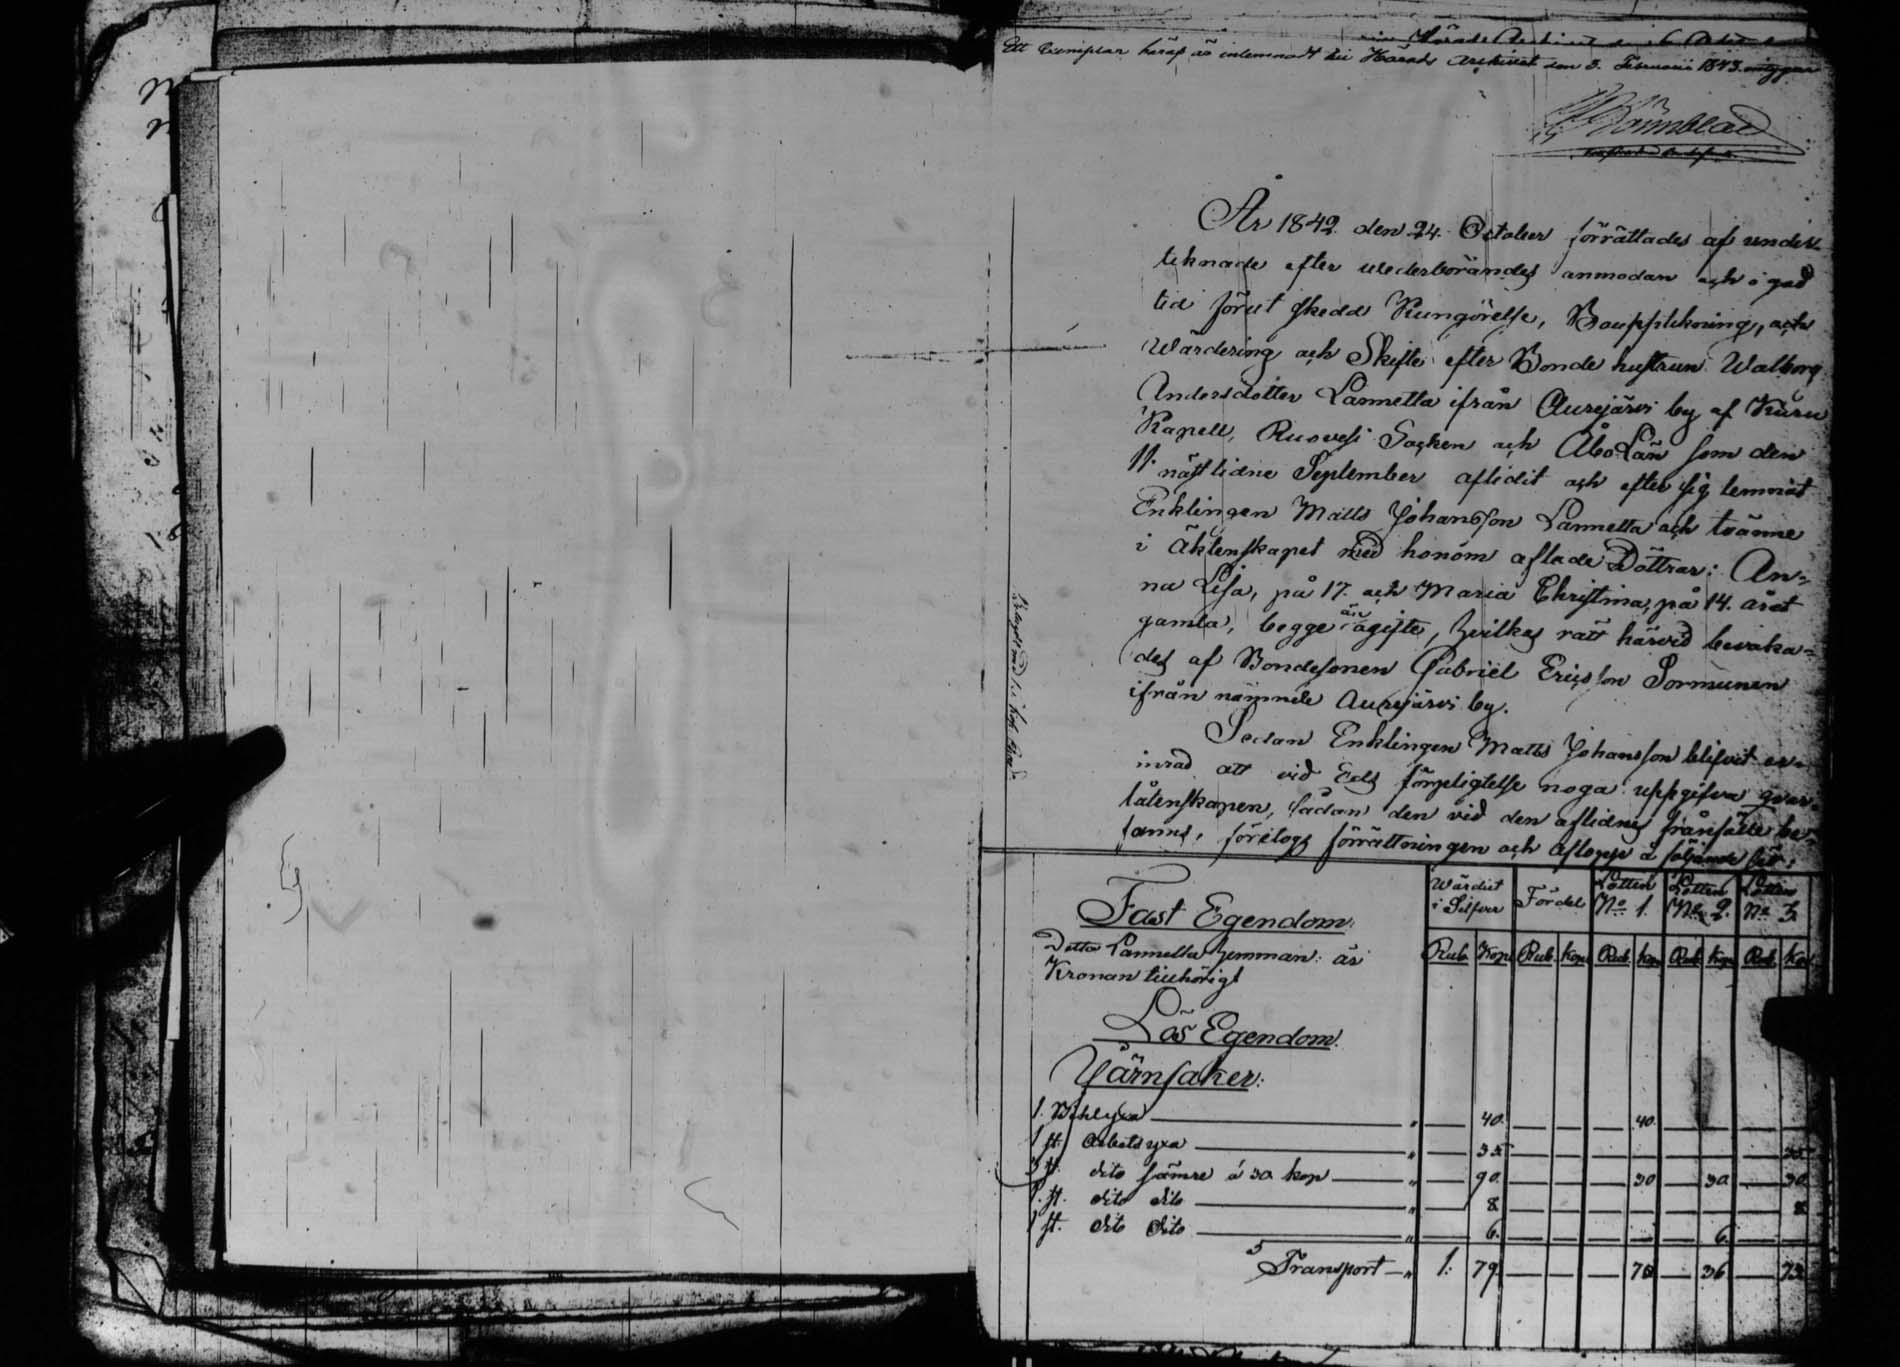 Ett Exemplar häraf är inlemnadt till Härads Archivet den 3. Februarii 1843. intygar
Brännblad
År 1842. den 24. October förrättades af under-
teknade efter wederbörandes anmodan och i god
tid förut skedd Kungörelse, Boupptekning, och
Wärdering och Skifte efter Bonde hustrun Walborg
Andersdotter Lannetta ifrån Aurejärvi by af Kuru
Kapell, Ruovesi Socken och Åbo Län som den
11. nästlidne September aflidit och efter sig lemnat
Enklingen Matts Johansson Lannetta och tvänne
i Äktenskapet med honom aflade Döttrar: An-
na Lisa, på 17. och Maria Christina, på 14. året
gamla, begge är ogifte, hvilkas rätt härvid bevaka-
des af Bondesonen Gabriel Ericsson Sormunen
ifrån nämnde Aurejärvi by.
Sedan Enklingen Matts Johansson blifvit er-
inrad att vid Eds förpligtelse noga uppgifva qvar-
låtenskapen, sådan den vid den aflidnes frånfälle be-
fanns, företogs förrättningen och aflopp å följande sätt:
Fast Egendom:
Wärdiet i Silfver Fördel Lotten No 1. Lotten No 2. Lotten No 3
Rub. Kop. Rub. Kop. Rub. Kop. Rub. Kop. Rub. Kop.
Detta Lannetta hemman är
Kronan tillhörigt
Lös Egendom.
Järnsaker:
1. Bihlyxa " 40. 40.
1 st. Arbetsyxa " 35 35
3 st. dito sämre á 30 kop " 90. 30 30 30
1. st. dito dito " 8 8
1 st. dito dito " 6. 6.
Transport " 1: 79. 70 36 73